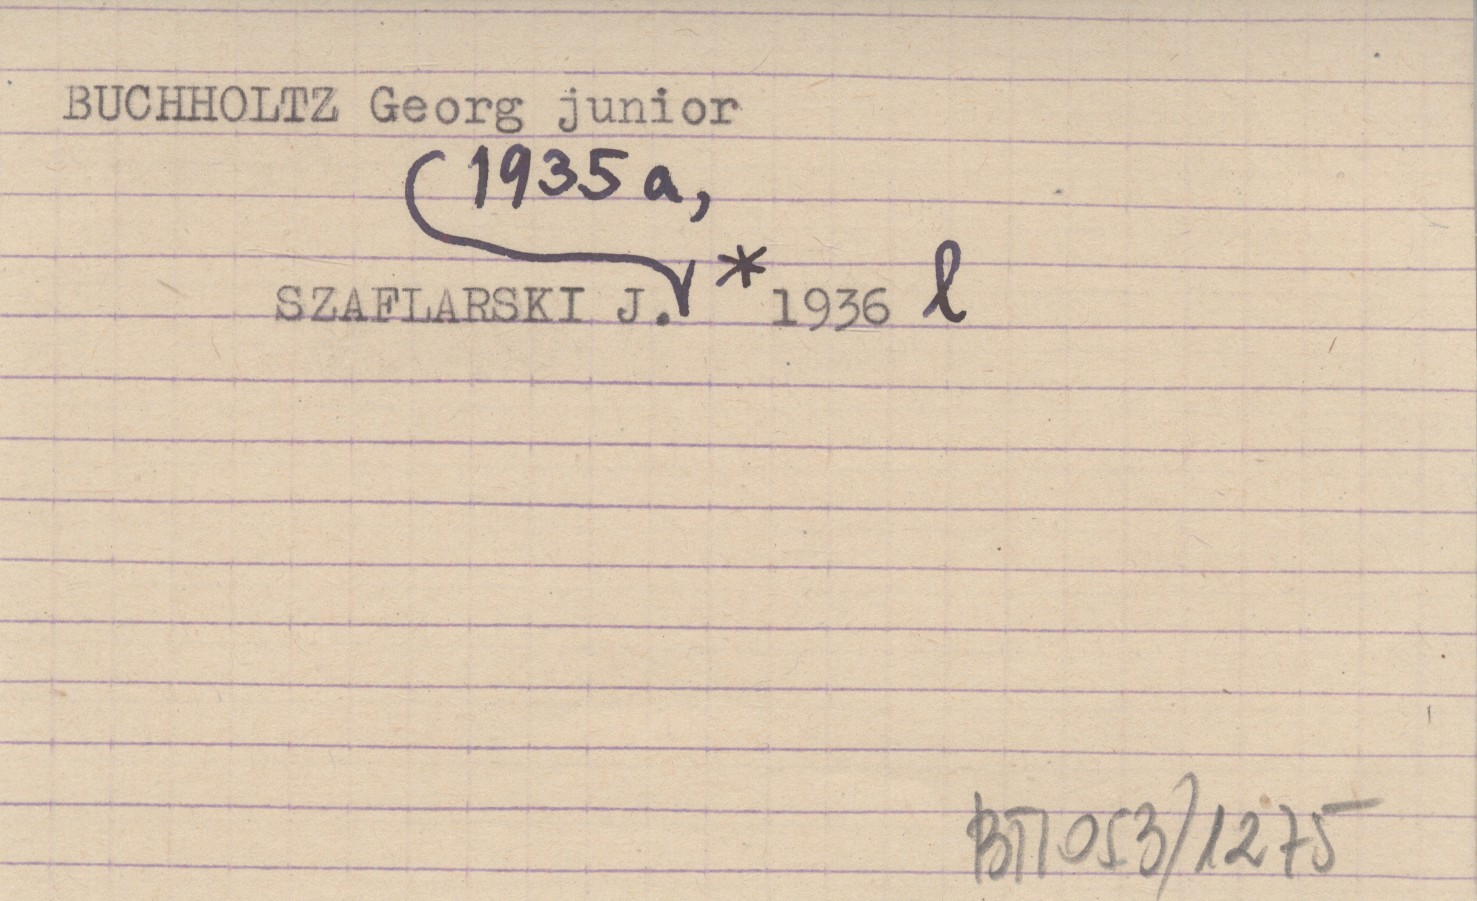 BUCHHOLTZ Georg junior
1935a,
SZAFLARSKI J. * 1936 l